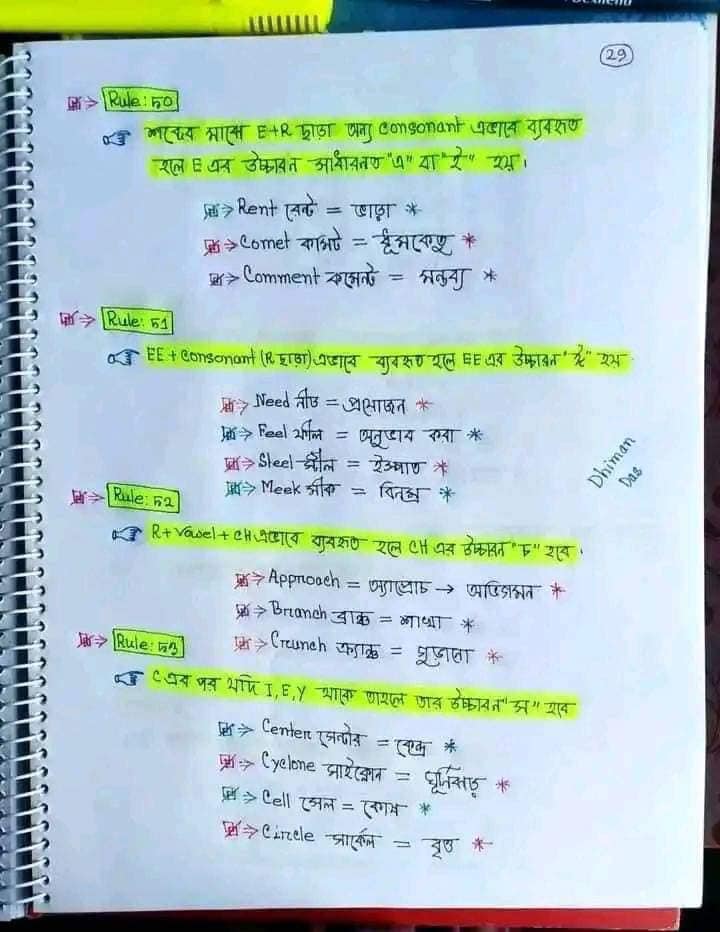 29
Rule: 50
শব্দের মাঝে E+R ছাড়া অন্য Consonant এভাবে ব্যবহৃত
হলে E এর উচ্চারন সাধারনত "এ" বা "ই" হয়।
Rent রেন্ট = ভাড়া *
Comet কমিট = ধূমকেতু *
Comment কমেন্ট = মন্তব্য *
Rule: 51
EE + Consonant (R ছাড়া) এভাবে ব্যবহৃত হলে EE এর উচ্চারন "ই" হয়
Need নীড = প্রয়োজন *
Feel ফীল = অনুভব করা *
Steel স্টীল = ইস্পাত *
Meek মীক = বিনম্র *
Dhiman
Das
Rule: 52
R + Vowel + CH এভাবে ব্যবহৃত হলে CH এর উচ্চারন "চ" হবে।
Approach = অ্যাপ্রোচ → অভিগমন *
Branch ব্রাঞ্চ = শাখা *
Rule: 53
Crunch ক্রাঞ্চ = গুড়ানো *
C এর পর যদি I, E, Y থাকে তাহলে তার উচ্চারন "স" হবে
Center সেন্টার = কেন্দ্র *
Cyclone সাইক্লোন = ঘূর্নিঝড় *
Cell সেল = কোষ *
Circle সার্কেল = বৃত্ত *